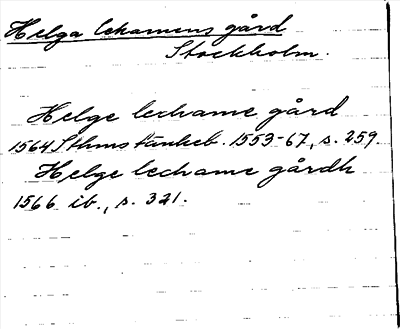 Helga lekamens gård
Stockholm.
Helge lechame gård
1564 Sthms tänkeb. 1553-67, s. 259
Helge lechame gårdh
1566 ib., s. 321.